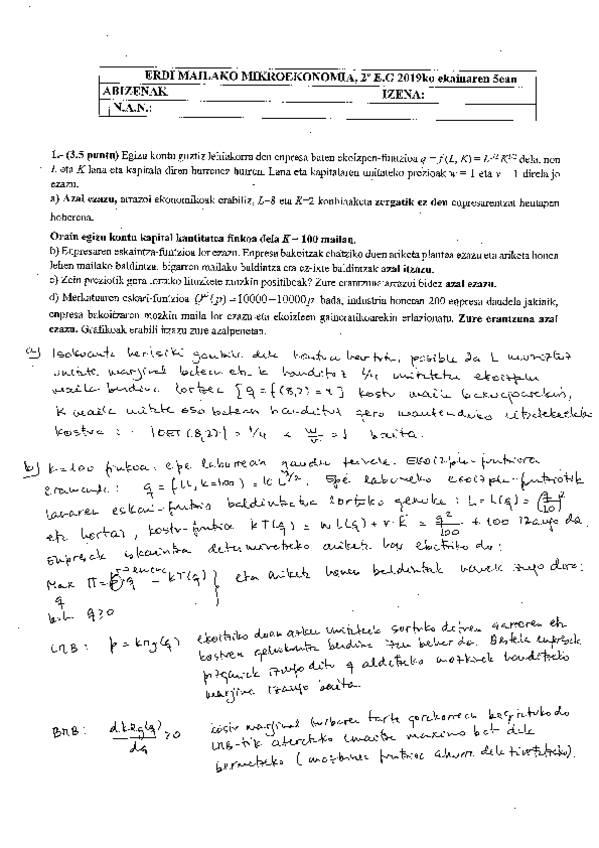 ERDI MAILAKO MIKROEKONOMIA, 2º E.G 2019ko ekainaren 5ean
ABIZENAK IZENA:
N.A.N.:
1.- (3.5 puntu) Egizu kontu guztiz lehiakorra den enpresa baten ekoizpen-funtzioa q = f(L, K) = L^1/2 K^1/2 dela, non
L eta K lana eta kapitala diren hurrenez hurren. Lana eta kapitalaren unitateko prezioak w = 1 eta v = 1 direla jo
ezazu.
a) Azal ezazu, arrazoi ekonomikoak erabiliz, L=8 eta K=2 konbinaketa zergatik ez den enpresarentzat hautapen
hoberena.
Orain egizu kontu kapital kantitatea finkoa dela K = 100 mailan.
b) Enpresaren eskaintza-funtzioa lor ezazu. Enpresa bakoitzak ebatziko duen ariketa plantea ezazu eta ariketa honen
lehen mailako baldintza, bigarren mailako baldintza eta ez-ixte baldintzak azal itzazu.
c) Zein preziotik gora lortuko lituzkete mozkin positiboak? Zure erantzuna arrazoi bidez azal ezazu.
d) Merkatuaren eskari-funtzioa Q^D(p) = 10000 − 10000p bada, industria honetan 200 enpresa daudela jakinik,
enpresa bakoitzaren mozkin maila lor ezazu eta ekoizleen gainerakinarekin erlazionatu. Zure erantzuna azal
ezazu. Grafikoak erabili itzazu zure azalpenetan.
a) Isokuanta berdinki kontuan hartuta, posible da L
unitate marginal batean eta K handituz 1/4 unitatetan ekoizpen
maila berdina lortzea [q = f(8,2) = 4] kostu maila
K maila unitate oso batean handituz gero mantenduko
kostua : |OET(8,2)| = 1/4 < w/v = 1 baita.
b) K=100 finkoa, epe laburrean gaude. Ekoizpen-funtzioa
q = f(L, K=100) = 10 L^1/2. Epe laburreko ekoizpen-funtziotik
lanaren eskari-funtzio baldintzatua lortuko genuke : L = L(q) = (q/10)^2
eta hortaz, kostu-funtzioa KT(q) = wL(q) + v·K = q^2/100 + 100 izango da.
Enpresak eskaintza determinatzeko ariketa hau ebatziko du:
Max Π = p q − KT(q) } eta ariketa honen baldintzak hauek izango dira:
q
b.b. q≥0
LMB : p = KMg(q) ekoitziko duen azken unitateak sortuko dituen sarreren eta
kostuen berdina izan behar da. Bestela enpresak
izango ditu q aldatzeko mozkinak handitzeko
margina izango baita.
BMB : dKMg(q)/dq ≥0 kostu marginal kurbaren tarte gorakorrean kokatuko da
LMB-tik ateratako emaitza maximo bat dela
bermatzeko (mozkinen funtzioa ahurra dela).